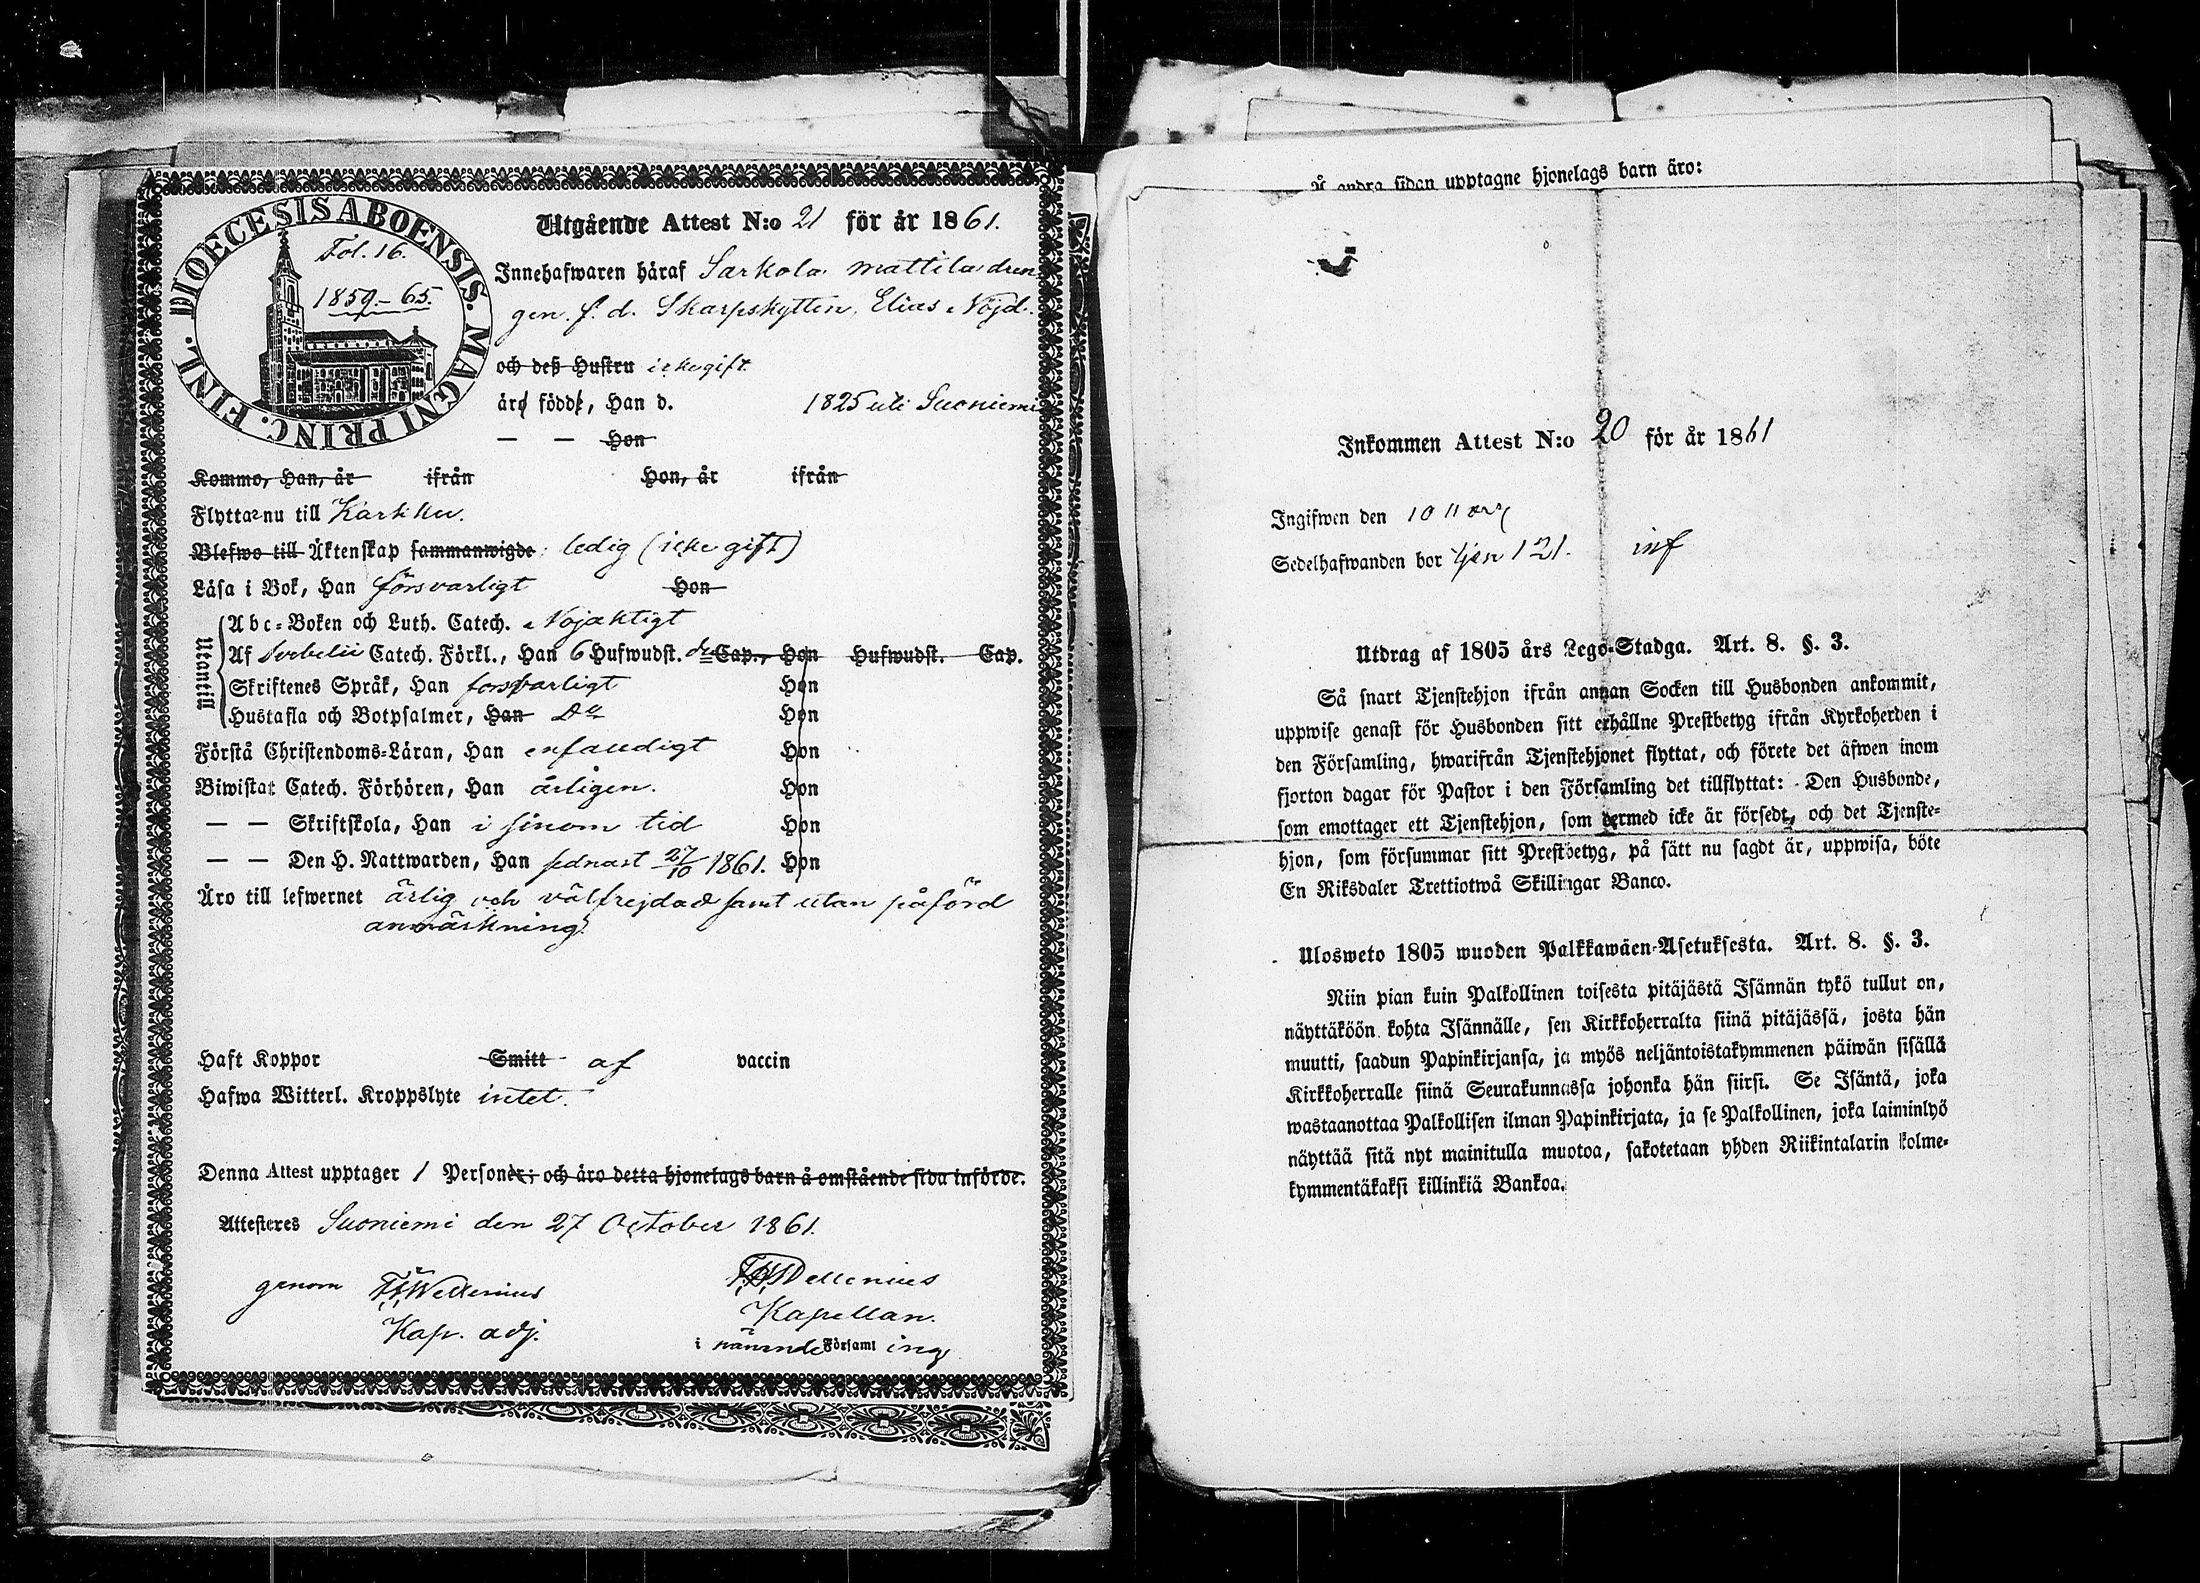 DIOECESIS ABOENSIS. MAGNI PRINC. FINL.
Fol. 16.
1859.–65.
Utgående Attest N:o 21 för år 1861.
Innehafwaren häraf Sarkola Mattila dren
gen f. d. Skarpskytten, Elias Nöjd.
och deß Hustru icke gift
äro födde, Han d. 1825 uti Suoniemi
— — Hon
Kommo, Han, år ifrån Hon, år ifrån
Flyttar nu till Karkku.
Blefwo till Äktenskap sammanwigde ledig (icke gift)
Läsa i Bok, Han försvarligt Hon
Utantill
Abc-Boken och Luth. Catech. Nöjaktigt
Af Svebelii Catech. Förkl., Han 6 Hufwudst. Cap., Hon Hufwudst. Cap.
Skriftenes Språk, Han försvarligt Hon
Hustafla och Botpsalmer, Han Do Hon
Förstå Christendoms-Läran, Han enfaldigt Hon
Biwistat Catech. Förhören, Han årligen. Hon
— — Skriftskola, Han i sinom tid Hon
— — Den H. Nattwarden, Han sednast 27/10 1861. Hon
Äro till lefwernet ärlig och välfrejdad samt utan påförd
anmärkning.
Haft Koppor Smitt af vaccin
Hafwa Witterl. Kroppslyte intet.
Denna Attest upptager 1 Personer; och äro detta hjonelags barn å omstående sida införde.
Attesteres Suoniemi den 27 October 1861.
genom Wellenius
Kap. adj.
Wellenius
Kapellan.
i nämnde Församling
Å andra sidan upptagne hjonelags barn äro:
Inkommen Attest N:o 20 för år 1861
Ingifwen den 10
Sedelhafwanden bor 121. inf
Utdrag af 1805 års Lego-Stadga. Art. 8. §. 3.
Så snart Tjenstehjon ifrån annan Socken till Husbonden ankommit,
uppwise genast för Husbonden sitt erhållne Prestbetyg ifrån Kyrkoherden i
den Församling, hwarifrån Tjenstehjonet flyttat, och förete det äfwen inom
fjorton dagar för Pastor i den Församling det tillflyttat: Den Husbonde,
som emottager ett Tjenstehjon, som dermed icke är försedt, och det Tjenste-
hjon, som försummar sitt Prestbetyg, på sätt nu sagdt är, uppwisa, böte
En Riksdaler Trettiotwå Skillingar Banco.
Ulosweto 1805 wuoden Palkkawäen-Asetuksesta. Art. 8. §. 3.
Niin pian kuin Palkollinen toisesta pitäjästä Isännän tykö tullut on,
näyttäköön kohta Isännälle, sen Kirkkoherralta siinä pitäjässä, josta hän
muutti, saadun Papinkirjansa, ja myös neljäntoistakymmenen päiwän sisällä
Kirkkoherralle siinä Seurakunnassa johonka hän siirsi. Se Isäntä, joka
wastaanottaa Palkollisen ilman Papinkirjata, ja se Palkollinen, joka laiminlyö
näyttää sitä nyt mainitulla muotoa, sakotetaan yhden Riikintalarin kolme-
kymmentäkaksi killinkiä Bankoa.